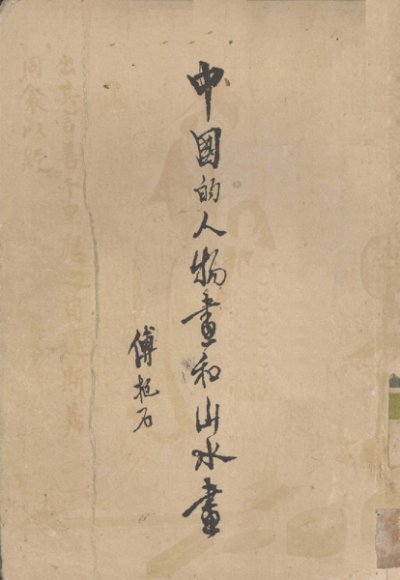 中國的人物畫和山水畫
傅抱石